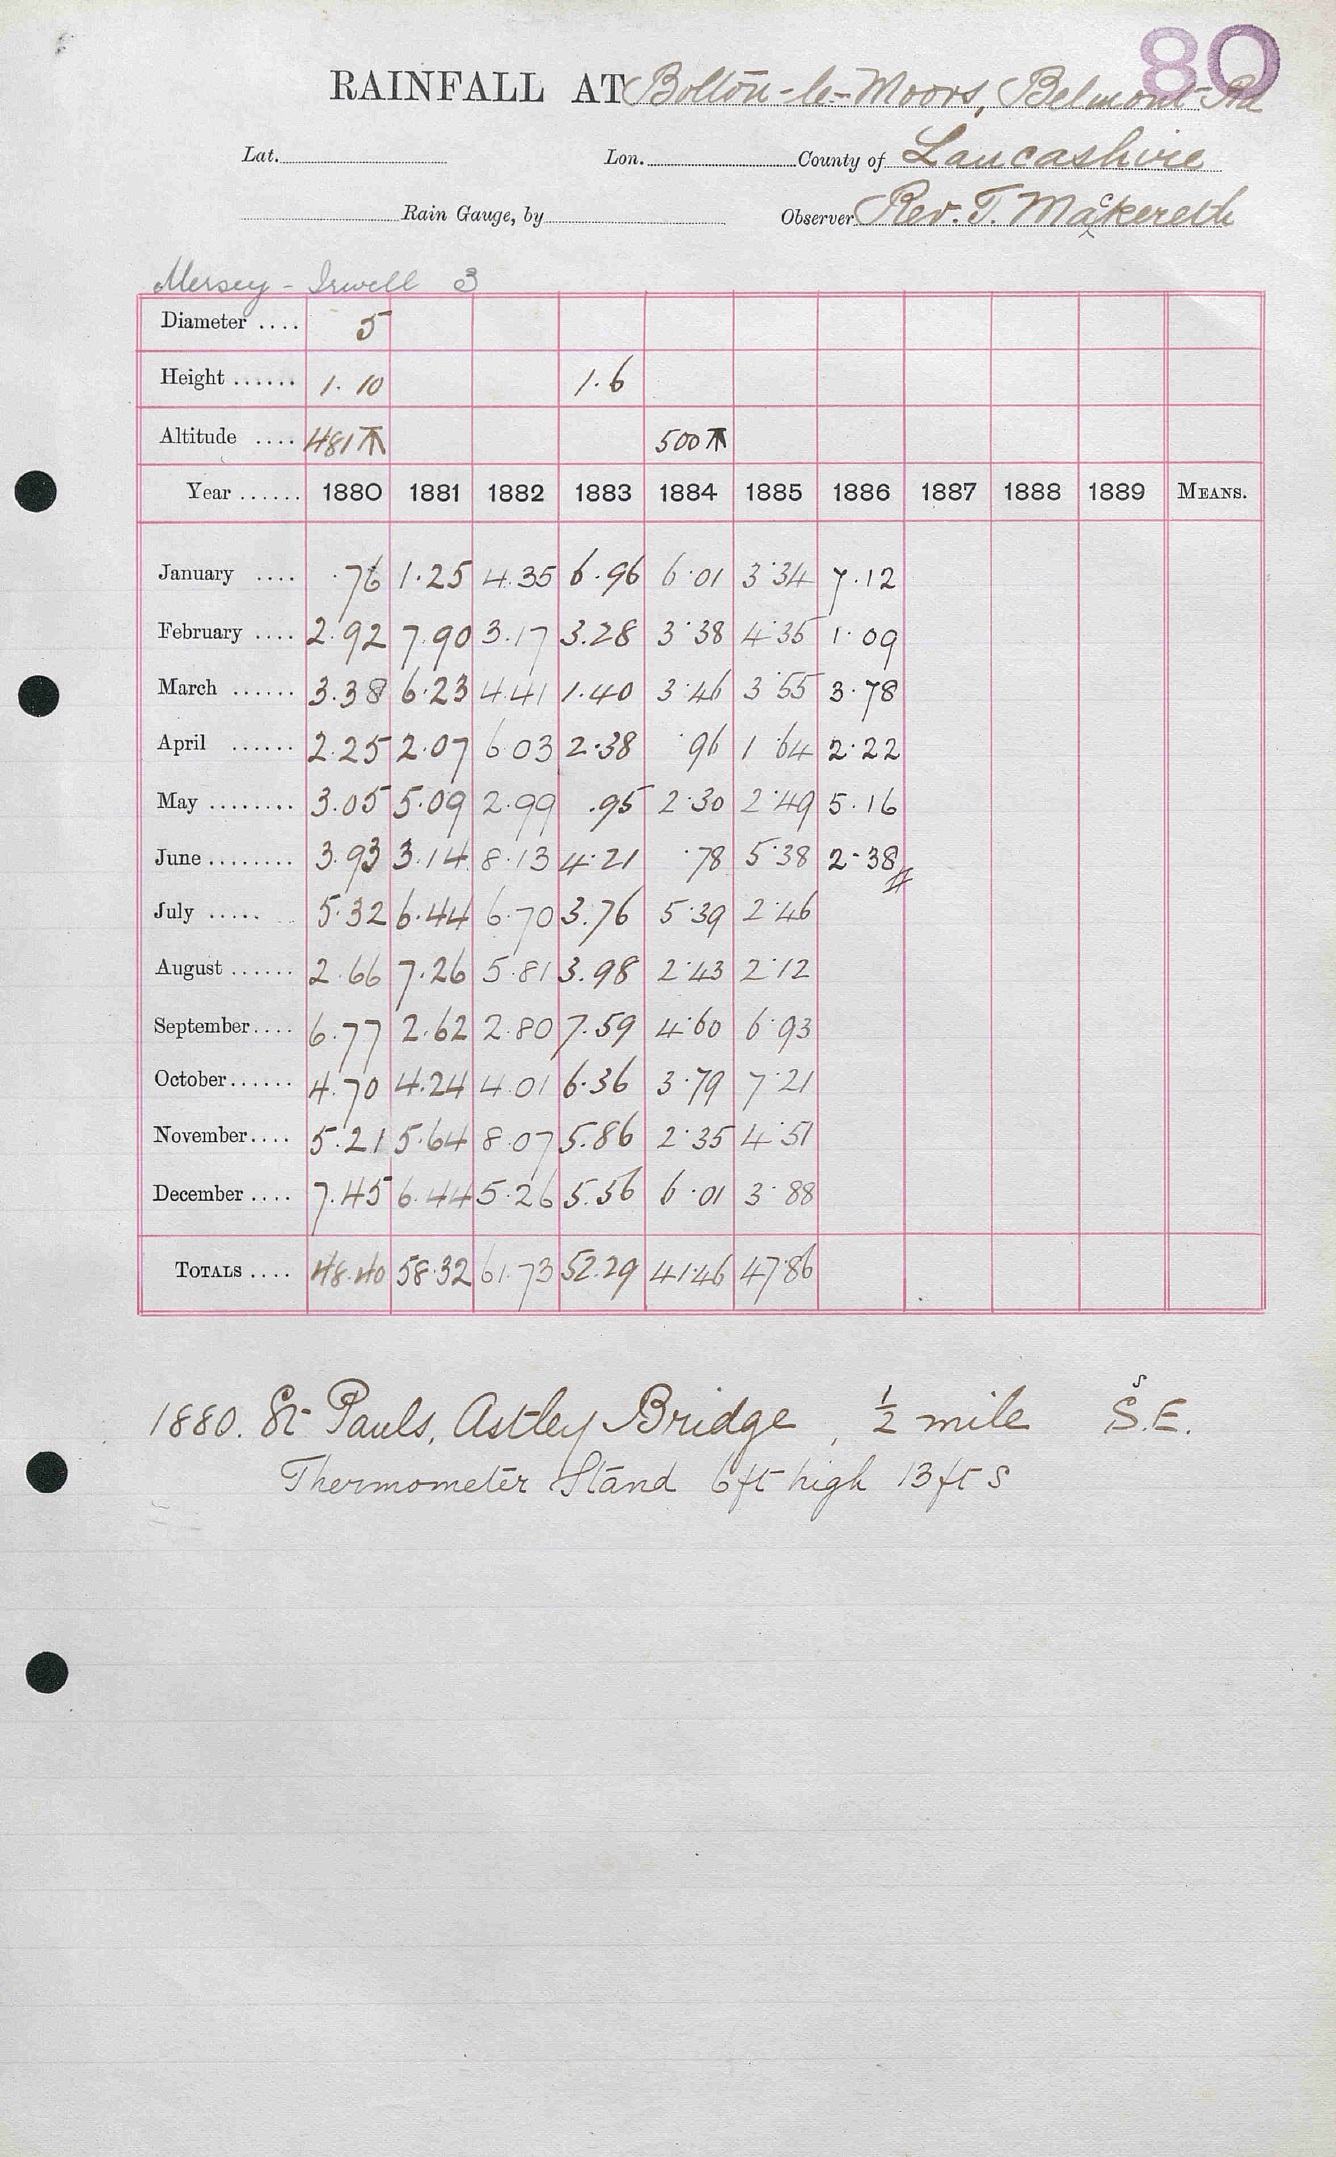 80
RAINFALL AT Bolton-le-Moors, Belmont Rd
Lat. Lon. County of Lancashire
Rain Gauge, by Observer Rev. T. Mackereth
Mersey - Irwell 3
Diameter .... 5
Height ...... 1.10 1.6
Altitude .... 481 500
Year ...... 1880 1881 1882 1883 1884 1885 1886 1887 1888 1889 MEANS.
January .... .76 1.25 4.35 6.96 6.01 3.34 7.12
February .... 2.92 7.90 3.17 3.28 3.38 4.35 1.09
March ...... 3.38 6.23 4.41 1.40 3.46 3.55 3.78
April ...... 2.25 2.07 6.03 2.38 .96 1.64 2.22
May ........ 3.05 5.09 2.99 .95 2.30 2.49 5.16
June ........ 3.93 3.14 8.13 4.21 .78 5.38 2.38
July ..... 5.32 6.44 6.70 3.76 5.39 2.46
August ...... 2.66 7.26 5.81 3.98 2.43 2.12
September.... 6.77 2.62 2.80 7.59 4.60 6.93
October...... 4.70 4.24 4.01 6.36 3.79 7.21
November.... 5.21 5.64 8.07 5.86 2.35 4.51
December .... 7.45 6.44 5.26 5.56 6.01 3.88
TOTALS .... 48.40 58.32 61.73 52.29 41.46 47.86
1880. St Pauls, Astley Bridge, 1/2 mile S.S.E.
Thermometer Stand 6ft high 13ft S